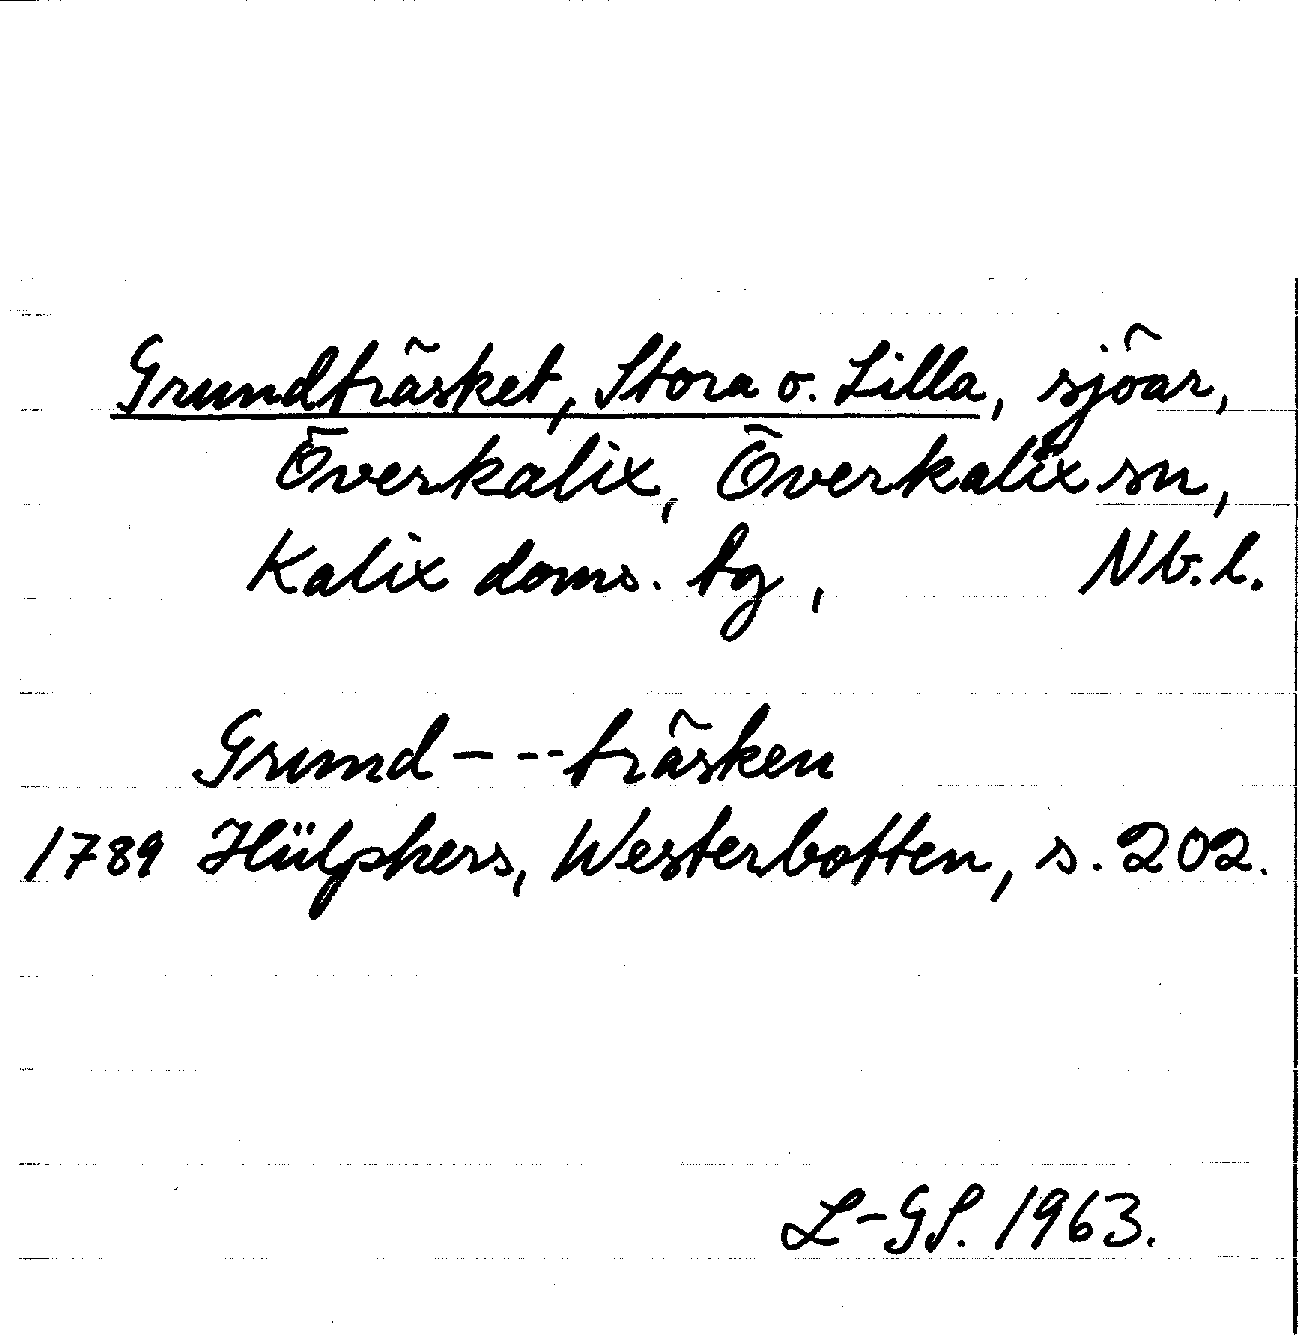 Grundträsket, Stora o. Lilla, sjöar,
Överkalix, Överkalix sn,
Kalix doms. tg, Nb. l.
Grund- --träsken
1789 Hülphers, Westerbotten, s. 202.
L-GS. 1963.